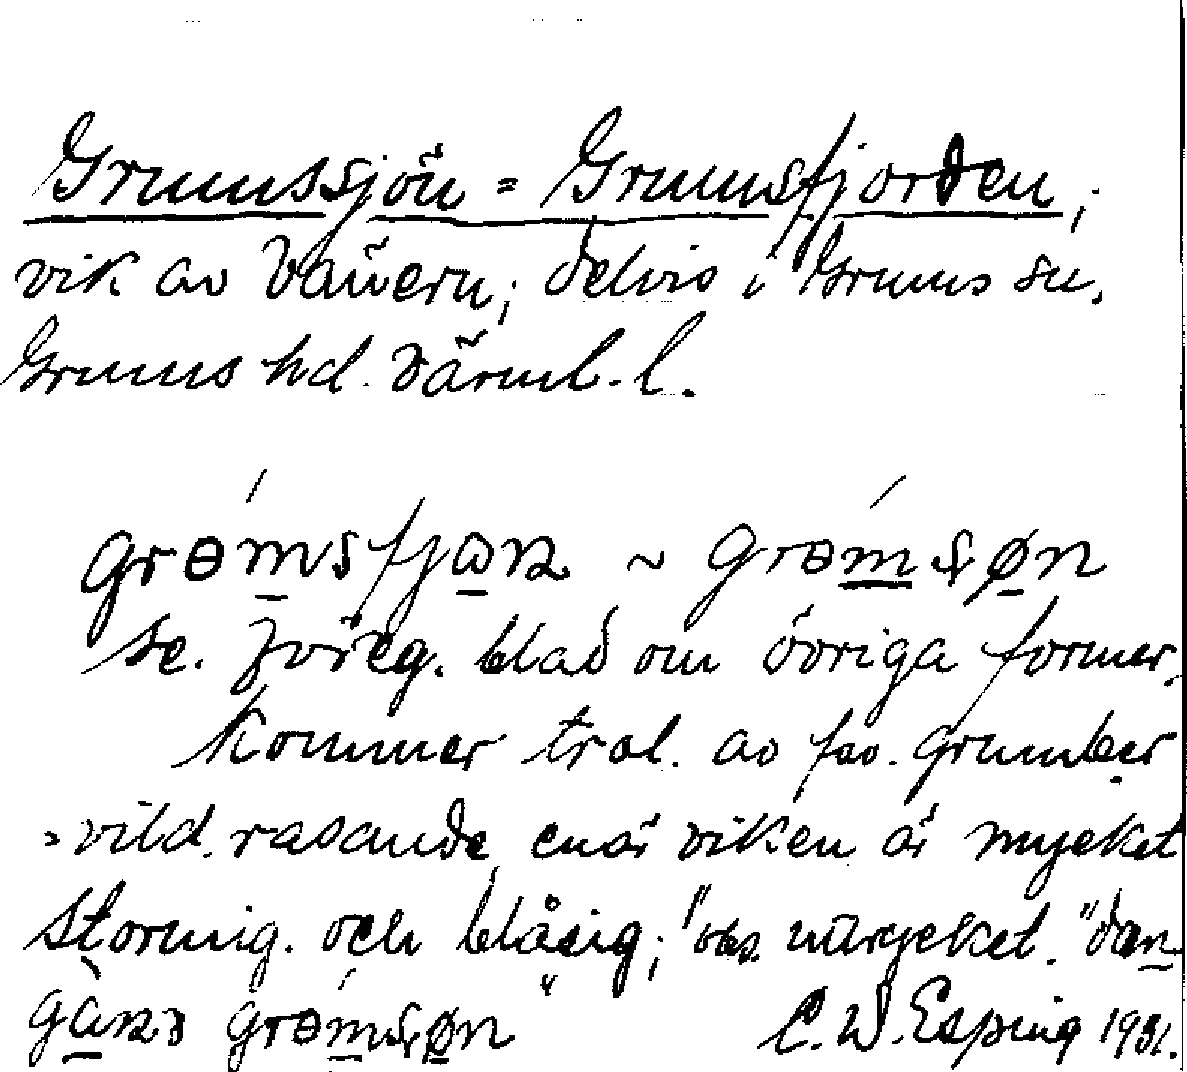 Grumssjön = Grumsfjorden,
vik av Vänern; delvis i Grums sn,
Grums hd. Värml. l.
grɵmsfjaɳ ~ grɵmsøn
Se. blad om övriga former.
Kommer trol. av fsv. grumber
vild, rasande, enär viken är mycket
stormig. och blåsig; "dan
grɵmsøn" C. W. Esping 1931.